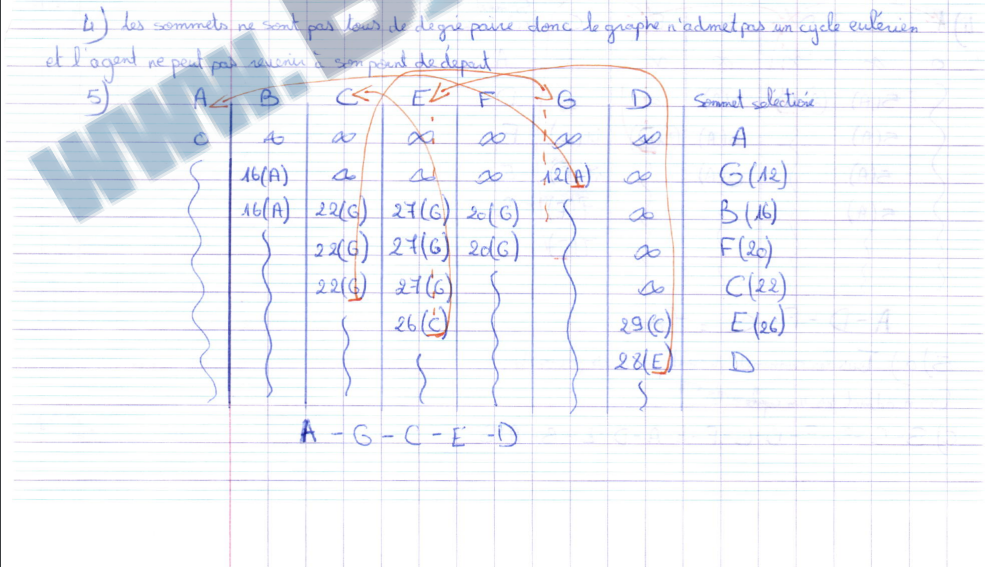 4) Les sommets ne sont pas tous de degré paire donc le graphe n'admet pas un cycle eulérien
et l'agent ne peut pas revenir à son point de départ
5) A B C E F G D Sommet sélectioné
0 ∞ ∞ ∞ ∞ ∞ ∞ A
16(A) ∞ ∞ ∞ 12(A) ∞ G(12)
16(A) 22(G) 27(G) 20(G) ∞ B(16)
22(G) 27(G) 20(G) ∞ F(20)
22(G) 27(G) ∞ C(22)
26(C) 29(C) E(26)
28(E) D
A - G - C - E - D
www.